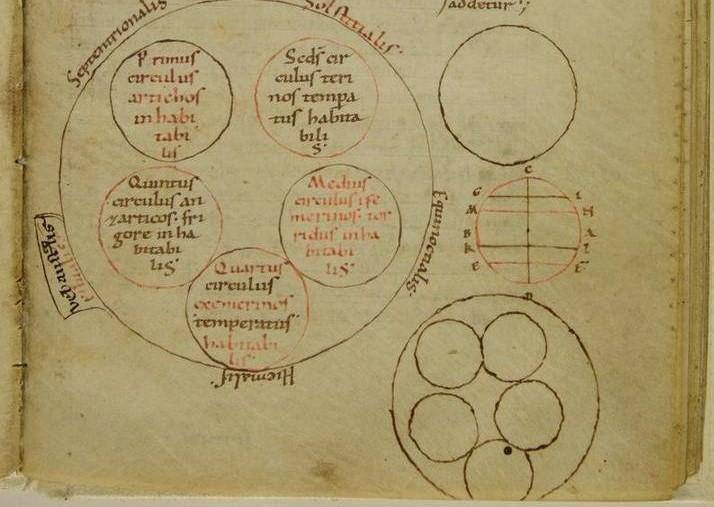 saddetur
Septentrionalis
Solstitialis
Primus
circulus
artichos
inhabi
tabi
lis
Scds cir
culus teri
nos tempa
tus habita
bili
s
Quintus
circulus an
tarticos fri
gore inha
bitabi
lis
Medius
circulus ise
merinos tor
ridus inha
bitabi
lis
Quartus
circulus
exemerinos
temperatus
habitabi
lis
Equinoctialis
Hiemalis
C
G I
M H
B A
K L
E F
D